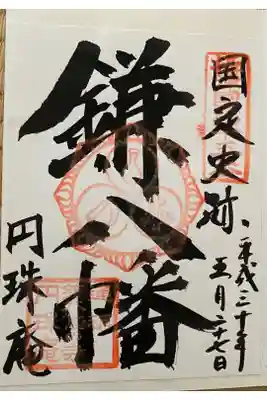 国定史跡
平成三十年
五月二十七日
鎌八幡
円珠庵